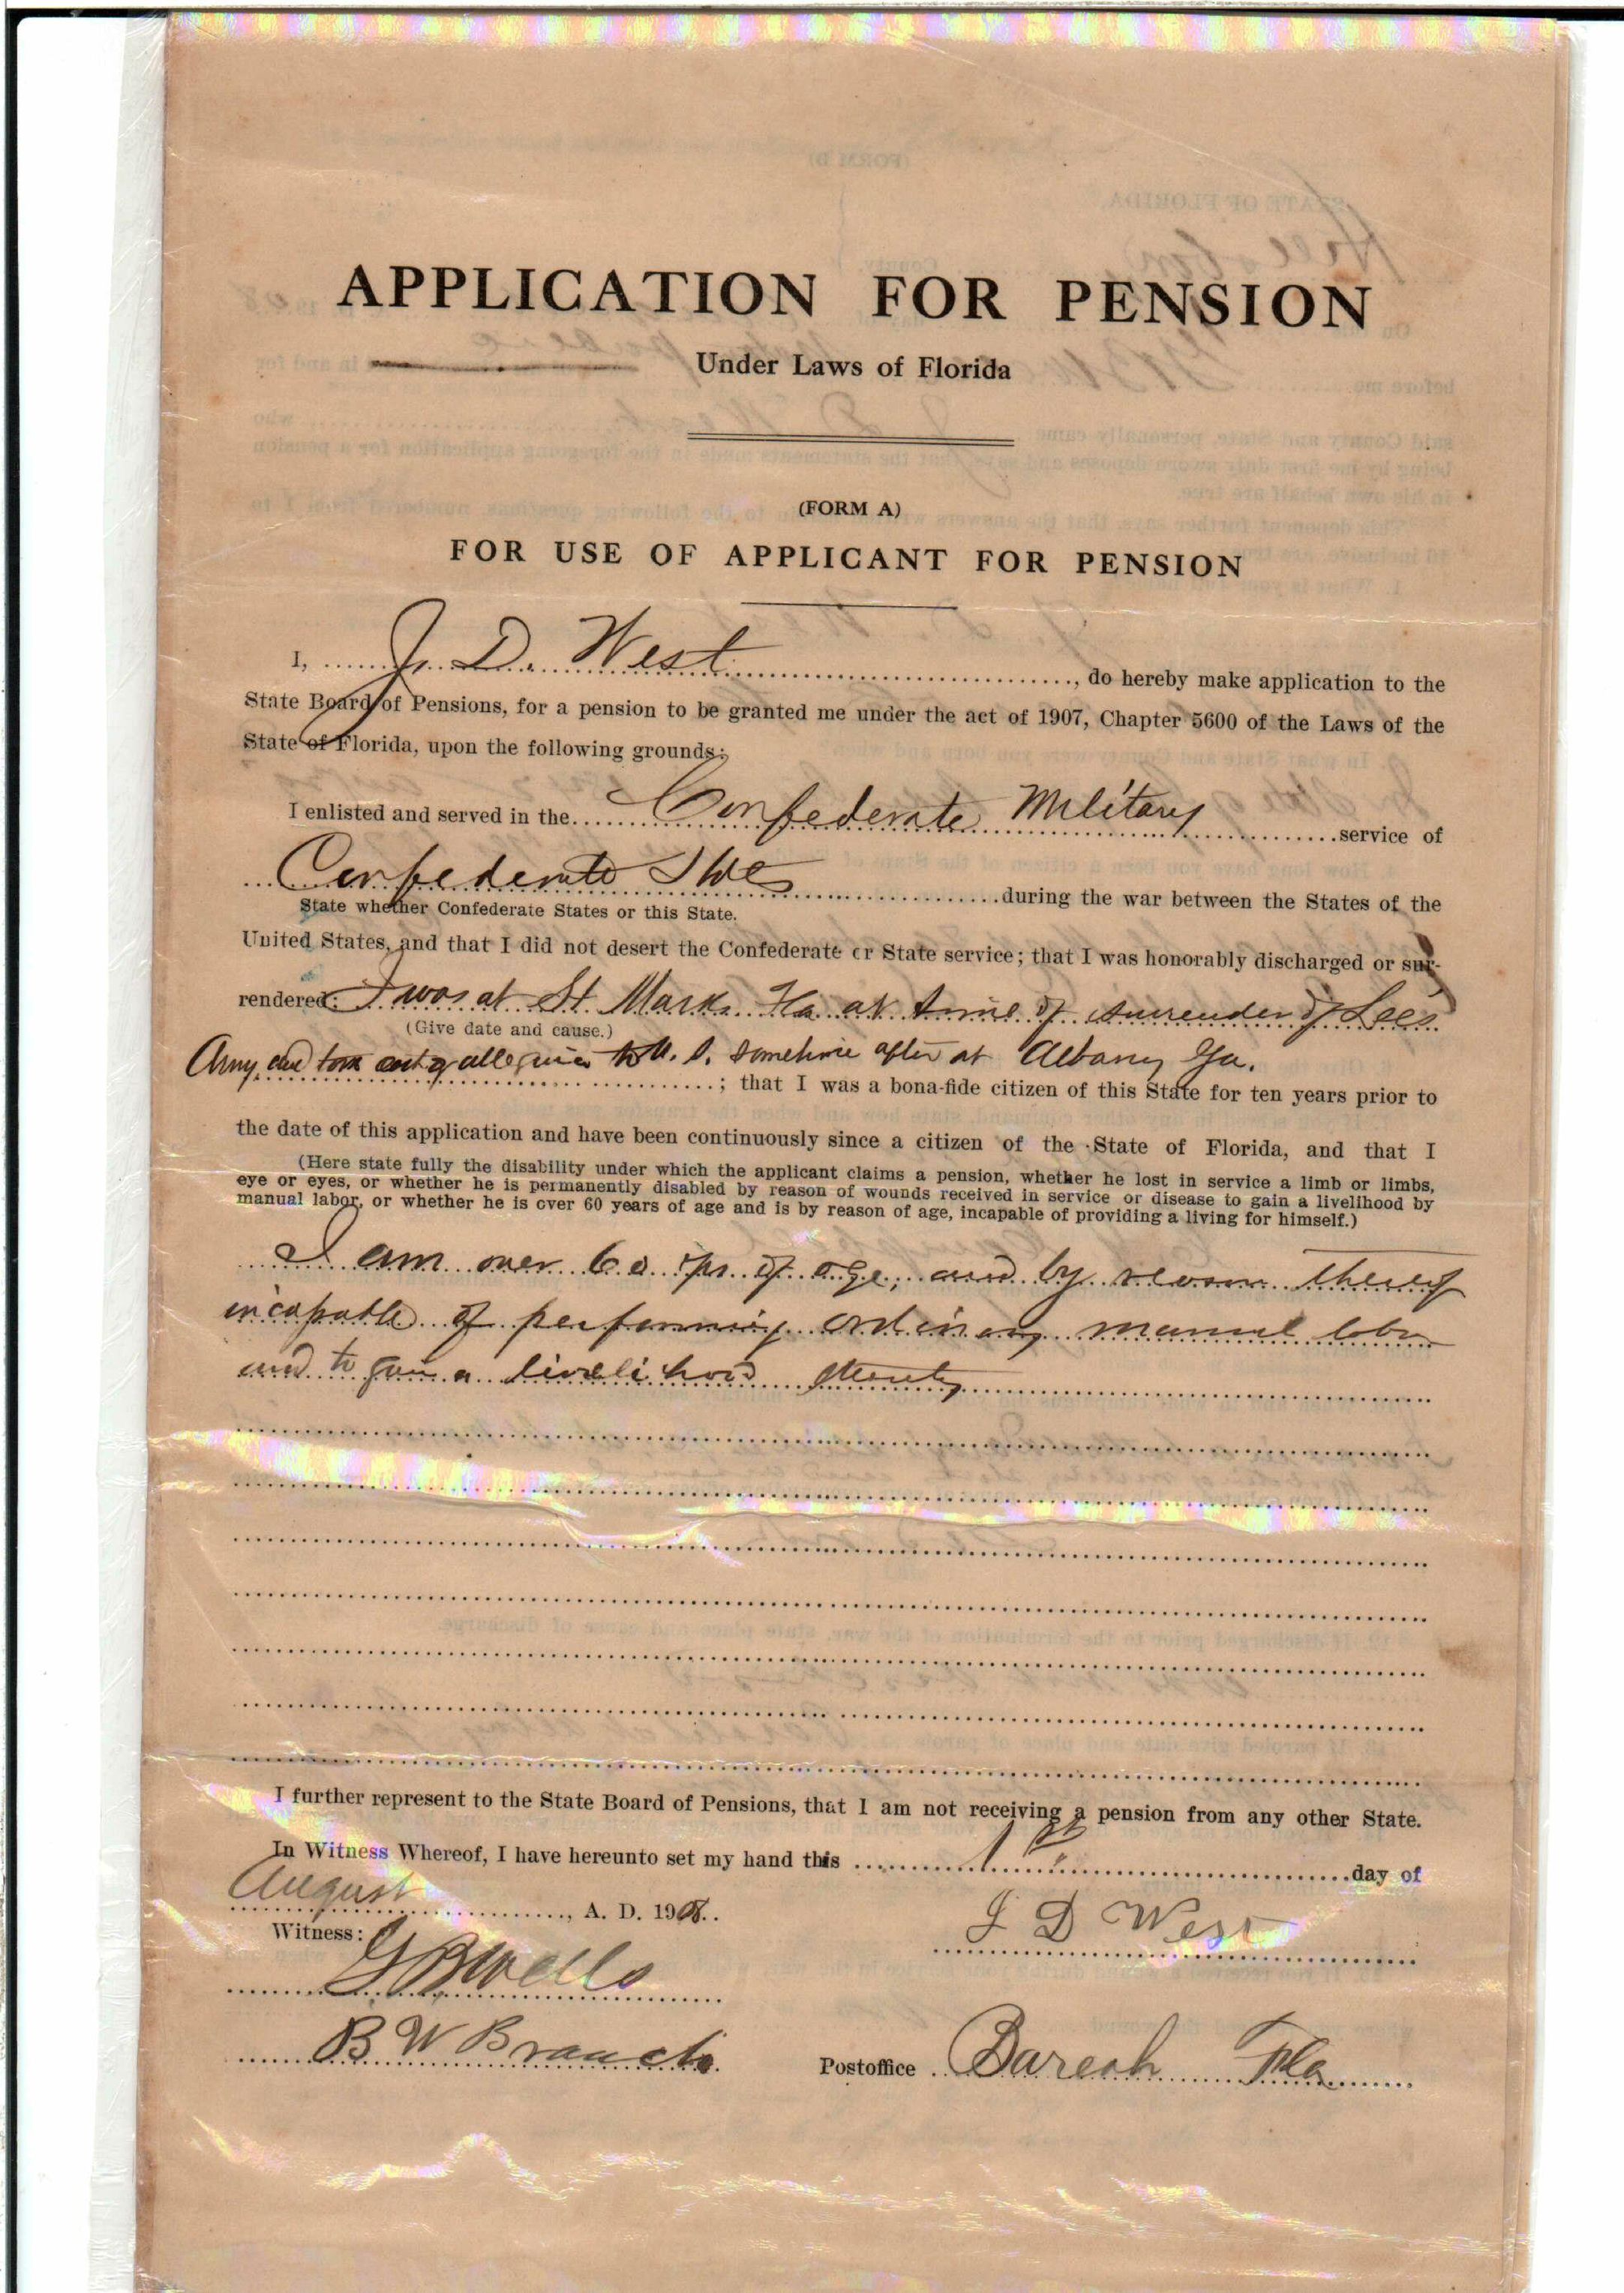 APPLICATION FOR PENSION
Under Laws of Florida
(FORM A)
FOR USE OF APPLICANT FOR PENSION
I, J. D. West, do hereby make application to the
State Board of Pensions, for a pension to be granted me under the act of 1907, Chapter 5600 of the Laws of the
State of Florida, upon the following grounds:
I enlisted and served in the Confederate Military service of
Confederate during the war between the States of the
State whether Confederate States or this State.
United States, and that I did not desert the Confederate or State service; that I was honorably discharged or sur-
rendered: I was at St. Marks Fla at time of surrender of Lee's
(Give date and cause.)
Army and took oath of allegiance to U. S. sometime after at Albany Ga.
; that I was a bona-fide citizen of this State for ten years prior to
the date of this application and have been continuously since a citizen of the State of Florida, and that I
(Here state fully the disability under which the applicant claims a pension, whether he lost in service a limb or limbs,
eye or eyes, or whether he is permanently disabled by reason of wounds received in service or disease to gain a livelihood by
manual labor, or whether he is over 60 years of age and is by reason of age, incapable of providing a living for himself.)
I am over 60 yrs of age, and by reason thereof
incapable of performing ordinary manual labor
and to gain a livelihood thereby
I further represent to the State Board of Pensions, that I am not receiving a pension from any other State.
In Witness Whereof, I have hereunto set my hand this 1st day of
August, A. D. 1908.
Witness: J D West
G B Wells
B W Branch Postoffice Dareoh Fla